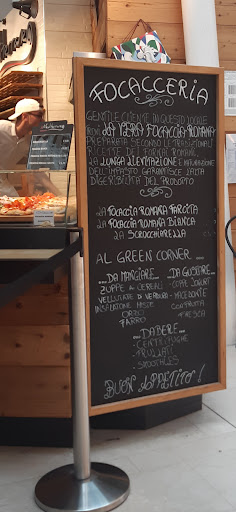 FOCACCERIA
GENTILE CLIENTE IN QUESTO LOCALE
LA VERA FOCACCIA ROMANA
PREPARATA SECONDO LE TRADIZIONALI
RICETTE DEI FORNAI ROMANI.
LA LUNGA LIEVITAZIONE E MATURAZIONE
DELL'IMPASTO GARANTISCE L'ALTA
DIGERIBILITÀ DEL PRODOTTO
LA FOCACCIA ROMANA FARCITA
LA FOCACCIA ROMANA BIANCA
LA SCROCCHIARELLA
AL GREEN CORNER...
...DA MANGIARE...
ZUPPE DI CEREALI
VELLUTATE DI VERDURA
INSALATONE MISTE
ORZO
FARRO
...DA GUSTARE...
COPPE YOGURT
MACEDONIE
CON FRUTTA
FRESCA
...DA BERE...
CENTRIFUGHE
FRULLATI
SMOOTHIES
BUON APPETITO!